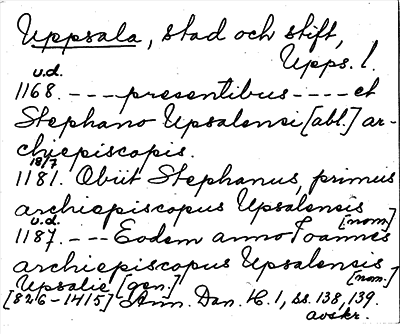 Uppsala, stad och stift,
Upps. l.
u.d.
1168. ----presentibus----et
Stephano Upsalensi [abl.] ar-
chiepiscopis.
18/7
1181. Obiit Stephanus, primus
archiepiscopus Upsalensis
[nom.]
u.d.
1187. --- Eodem anno Ioannes
archiepiscopus Upsalensis
[nom.]
Upsalie [gen.]
[826-1415] Ann. Dan. H. 1, ss. 138, 139.
avskr.